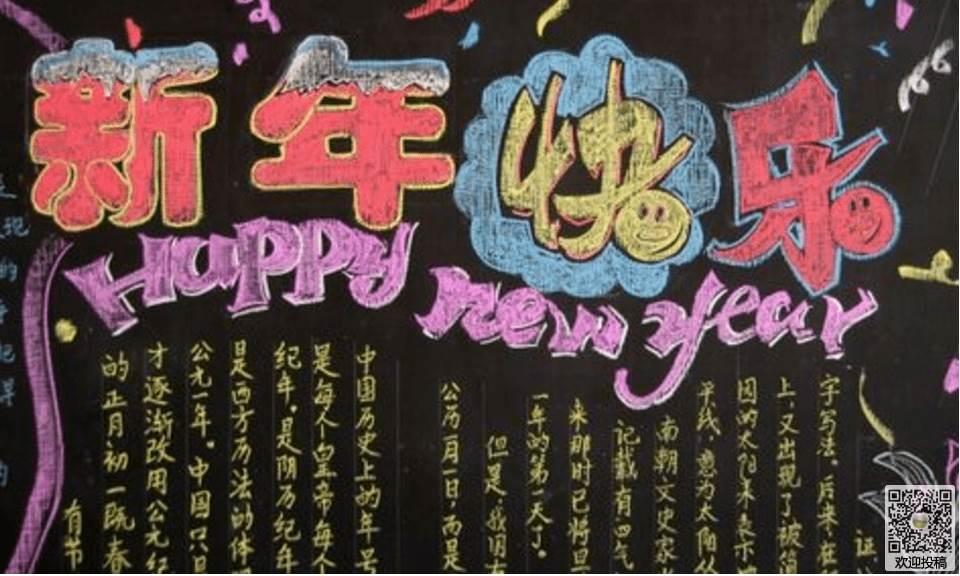 新年快乐
Happy
new year
证
字写法。后来在
上又出现了被简
圆的太阳来表示
平线,意为太阳从
南朝文史家
记载有"四气
来那时已将旦
一年的第一天了。
但是我国古
公历一月一日,而是
中国历史上的年号
是每个皇帝每个
纪年,是阴历纪年
是西方历法的体
公元一年。中国
才逐渐改用公元纪
的正月初一既春
有节
欢迎投稿